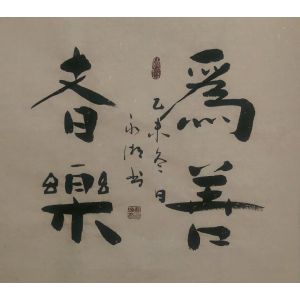 爲善
者樂
乙未冬日
永湖书